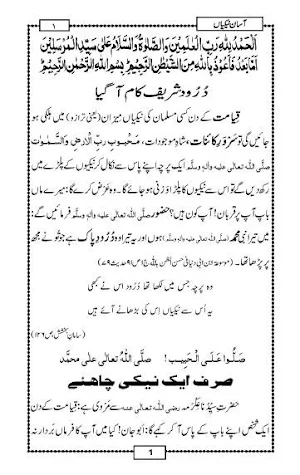 آسان نیکیاں
۱
اَلْحَمْدُ لِلّٰہِ رَبِّ الْعٰلَمِیْنَ وَالصَّلٰوۃُ وَالسَّلَامُ عَلٰی سَیِّدِ الْمُرْسَلِیْنَ
اَمَّا بَعْدُ فَاَعُوْذُ بِاللّٰہِ مِنَ الشَّیْطٰنِ الرَّجِیْمِ بِسْمِ اللّٰہِ الرَّحْمٰنِ الرَّحِیْمِ
دُرُود شریف کام آ گیا
قیامت کے دن کسی مسلمان کی نیکیاں میزان (یعنی ترازو) میں ہلکی ہو
جائیں گی تو سرورِ کائنات، شاہِ موجودات، محبوبِ ربُّ الارضِ والسَّمٰوات
صلَّی اللہ تعالٰی علیہ واٰلہٖ وسلَّم ایک پرچہ اپنے پاس سے نکال کر نیکیوں کے پلڑے میں
رکھ دیں گے تو اس سے نیکیوں کا پلڑا وَزنی ہو جائے گا۔ وہ عرض کرے گا: میرے ماں
باپ آپ پر قربان! آپ کون ہیں؟ حضور صلَّی اللہ تعالٰی علیہ واٰلہٖ وسلَّم فرمائیں گے:
میں تیرا نبی محمد (صلَّی اللہ تعالٰی علیہ واٰلہٖ وسلَّم) ہوں اور یہ تیرا وہ دُرُودِ پاک ہے جو تُو نے مجھ
پر پڑھا تھا۔ (موسوعۃ ابن ابی دنیا فی حسن الظن باللہ ج۱ ص۹۱ حدیث۷۹)
وہ پرچہ جس میں لکھا تھا دُرُود اس نے کبھی
یہ اُس سے نیکیاں اِس کی بڑھانے آئے ہیں
(سامانِ بخشش، ص۱۲۶)
صَلُّوا عَلَی الْحَبِیْب! صلَّی اللّٰہُ تعالٰی علٰی محمَّد
صرف ایک نیکی چاہئے
حضرتِ سیِّدُنا عِکْرَمہ رضی اللہ تعالٰی عنہ سے مَروی ہے: قیامت کے دن
ایک شخص اپنے باپ کے پاس آ کر کہے گا: ابو جان! کیا میں آپ کا فرماں بَردار نہ
1